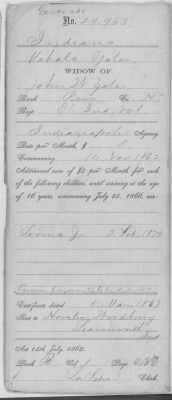 Increase
No. 29,963
Indiana
Mahala Yates
WIDOW OF
John W. Yates
Rank Priv Co. H
Regt 81 Ind. Vol.
Indianapolis Agency
Rate per Month, $ 8
Commencing 14 Nov 1862
Additional sum of $2 per Month for each
of the following children, until arriving at the age
of 16 years, commencing July 25, 1866, viz:
J. 2 Feb. 1874
Certificate dated 5 Mar 1867
Sent to Horatio Woodbury
Leavenworth
Ind
Act 14th July, 1862.
Book Vol. Page
Clerk.